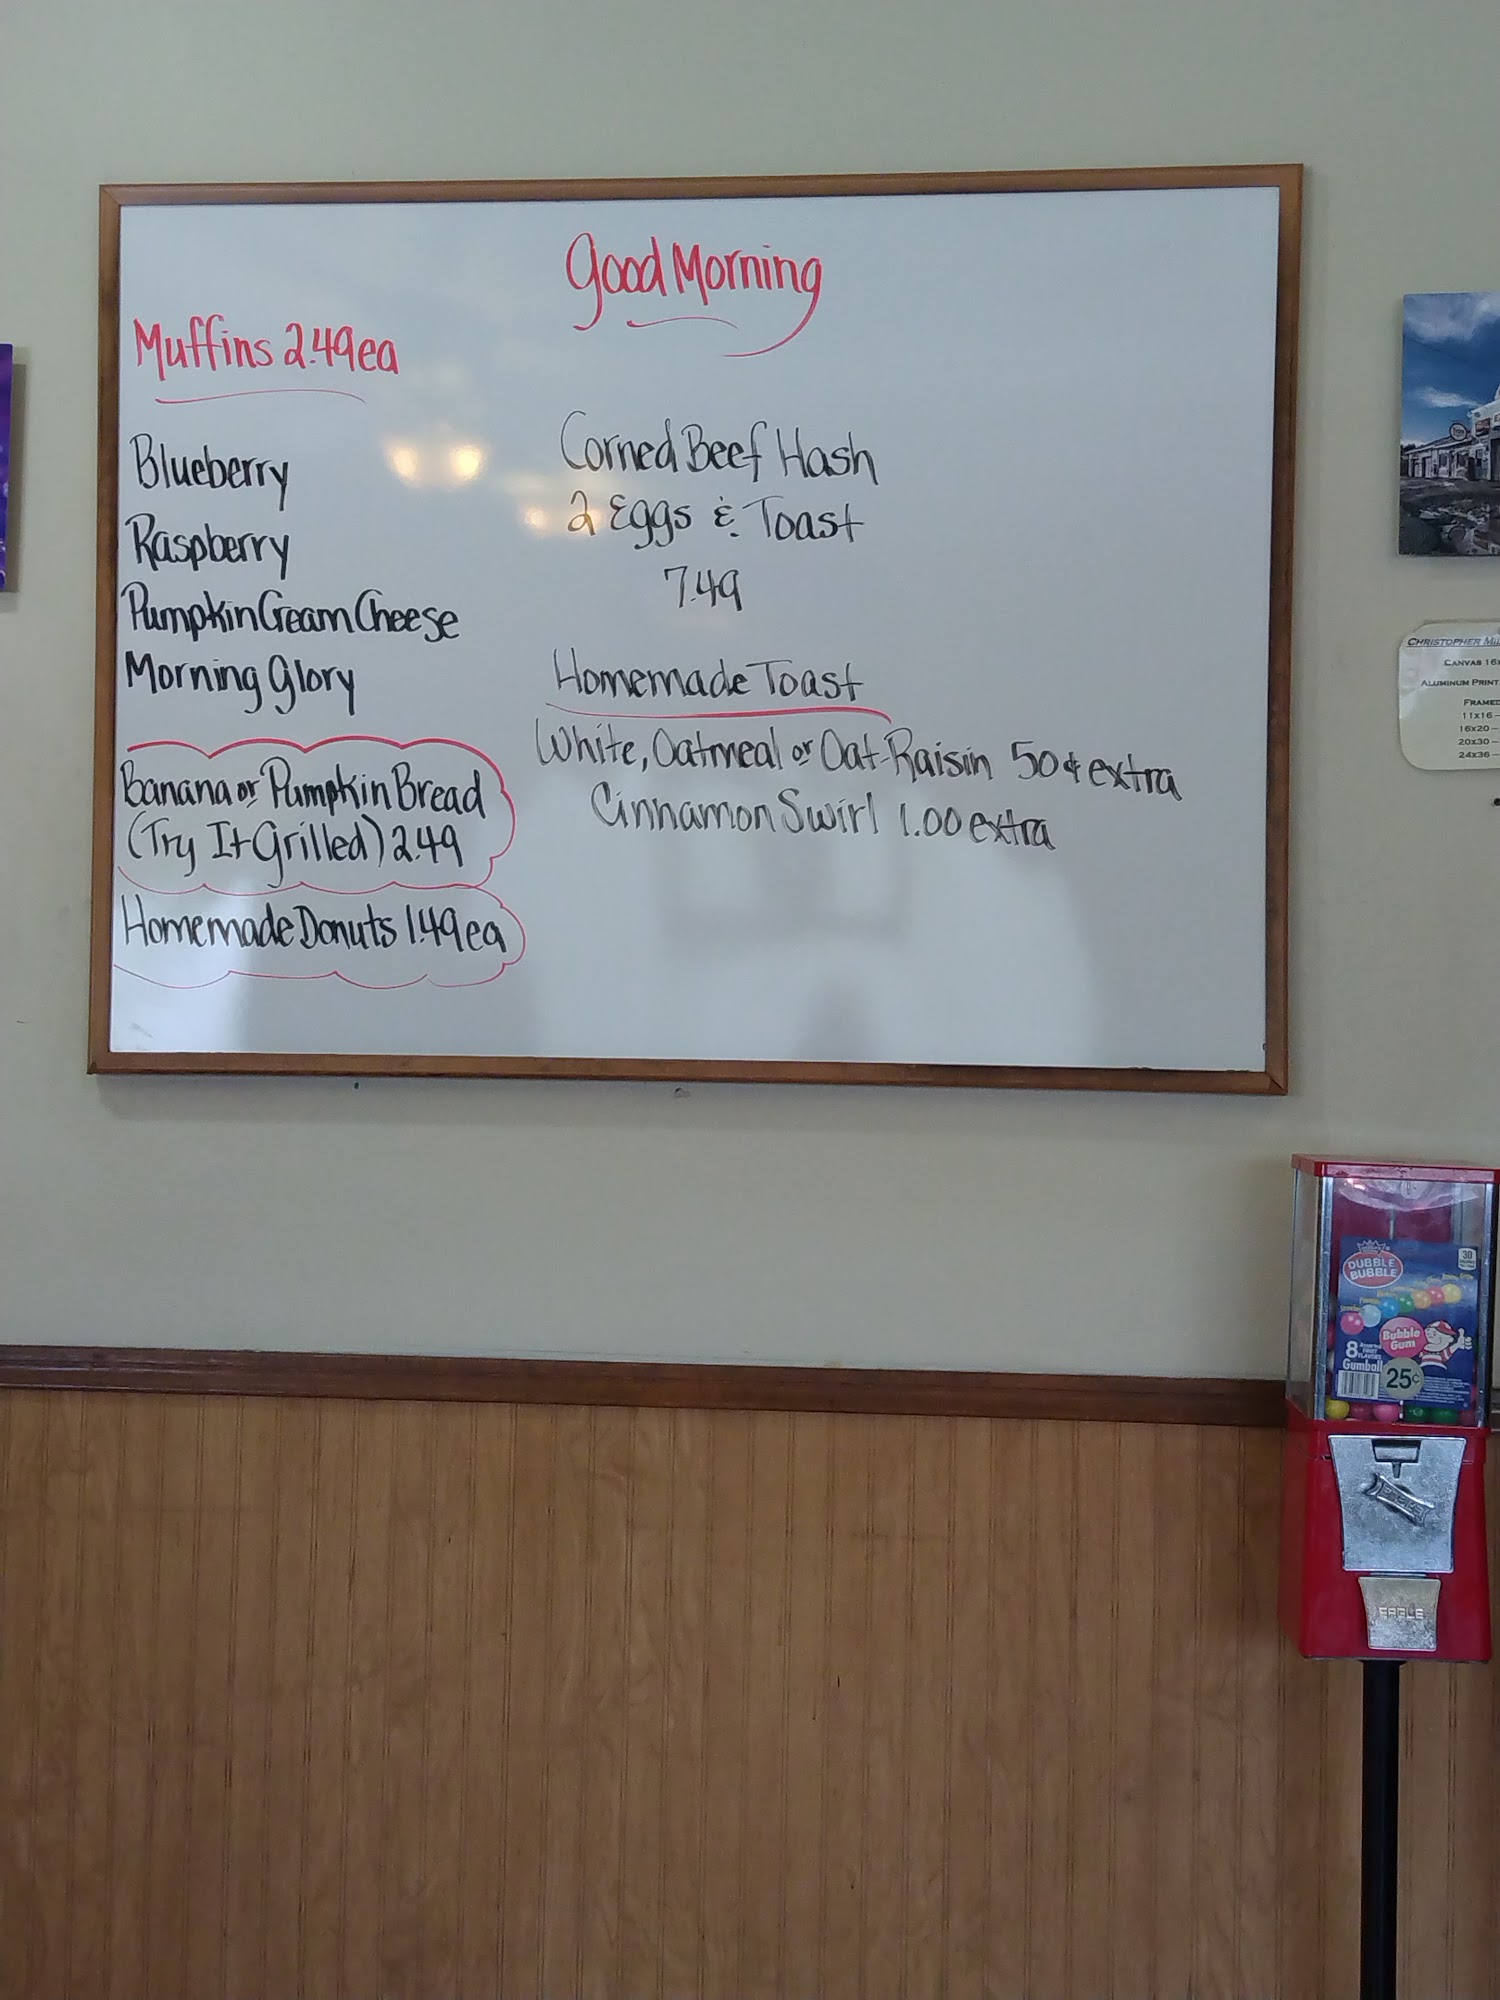 Good Morning
Muffins 2.49 ea
Blueberry
Raspberry
Pumpkin Cream Cheese
Morning Glory
Banana or Pumpkin Bread
(Try It Grilled) 2.49
Homemade Donuts 1.49 ea
Corned Beef Hash
2 Eggs & Toast
7.49
Homemade Toast
White, Oatmeal or Oat-Raisin 50¢ extra
Cinnamon Swirl 1.00 extra
CHRISTOPHER
CANVAS
ALUMINUM PRINT
FRAMED
11x16
16x20
20x30
24x36
DUBBLE
BUBBLE
30
Bubble
Gum
8
Gumball
25¢
EAGLE